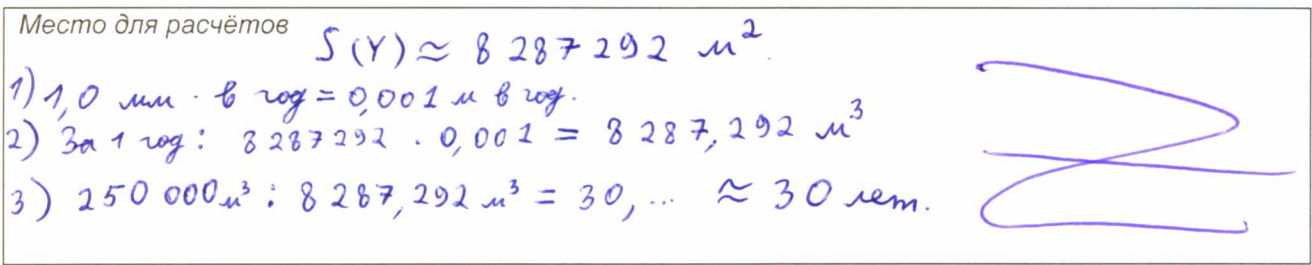 Место для расчётов
S(Y) ≈ 8 287 292 м².
1) 1,0 мм · в год = 0,001 м в год.
2) За 1 год: 8 287 292 . 0,001 = 8 287,292 м³
3) 250 000 м³ : 8 287,292 м³ = 30,... ≈ 30 лет.